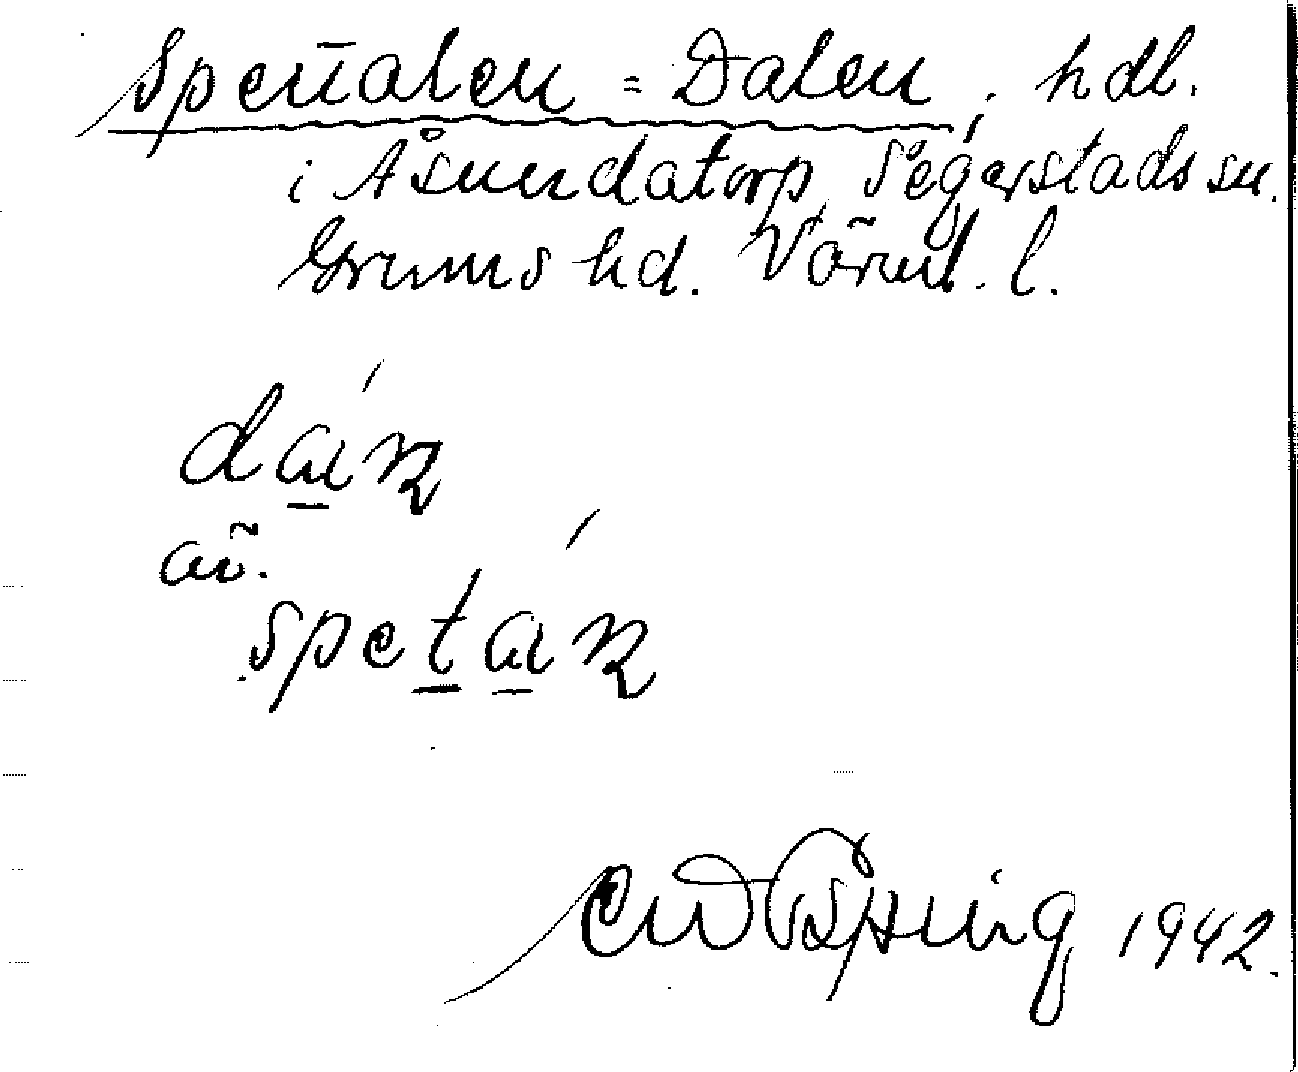 Spettalen = Dalen, hdl.
i Åsundatorp Segerstads sn.
Grums hd. Värml. l.
dáɩn
äv.
spetáɩn
1942.